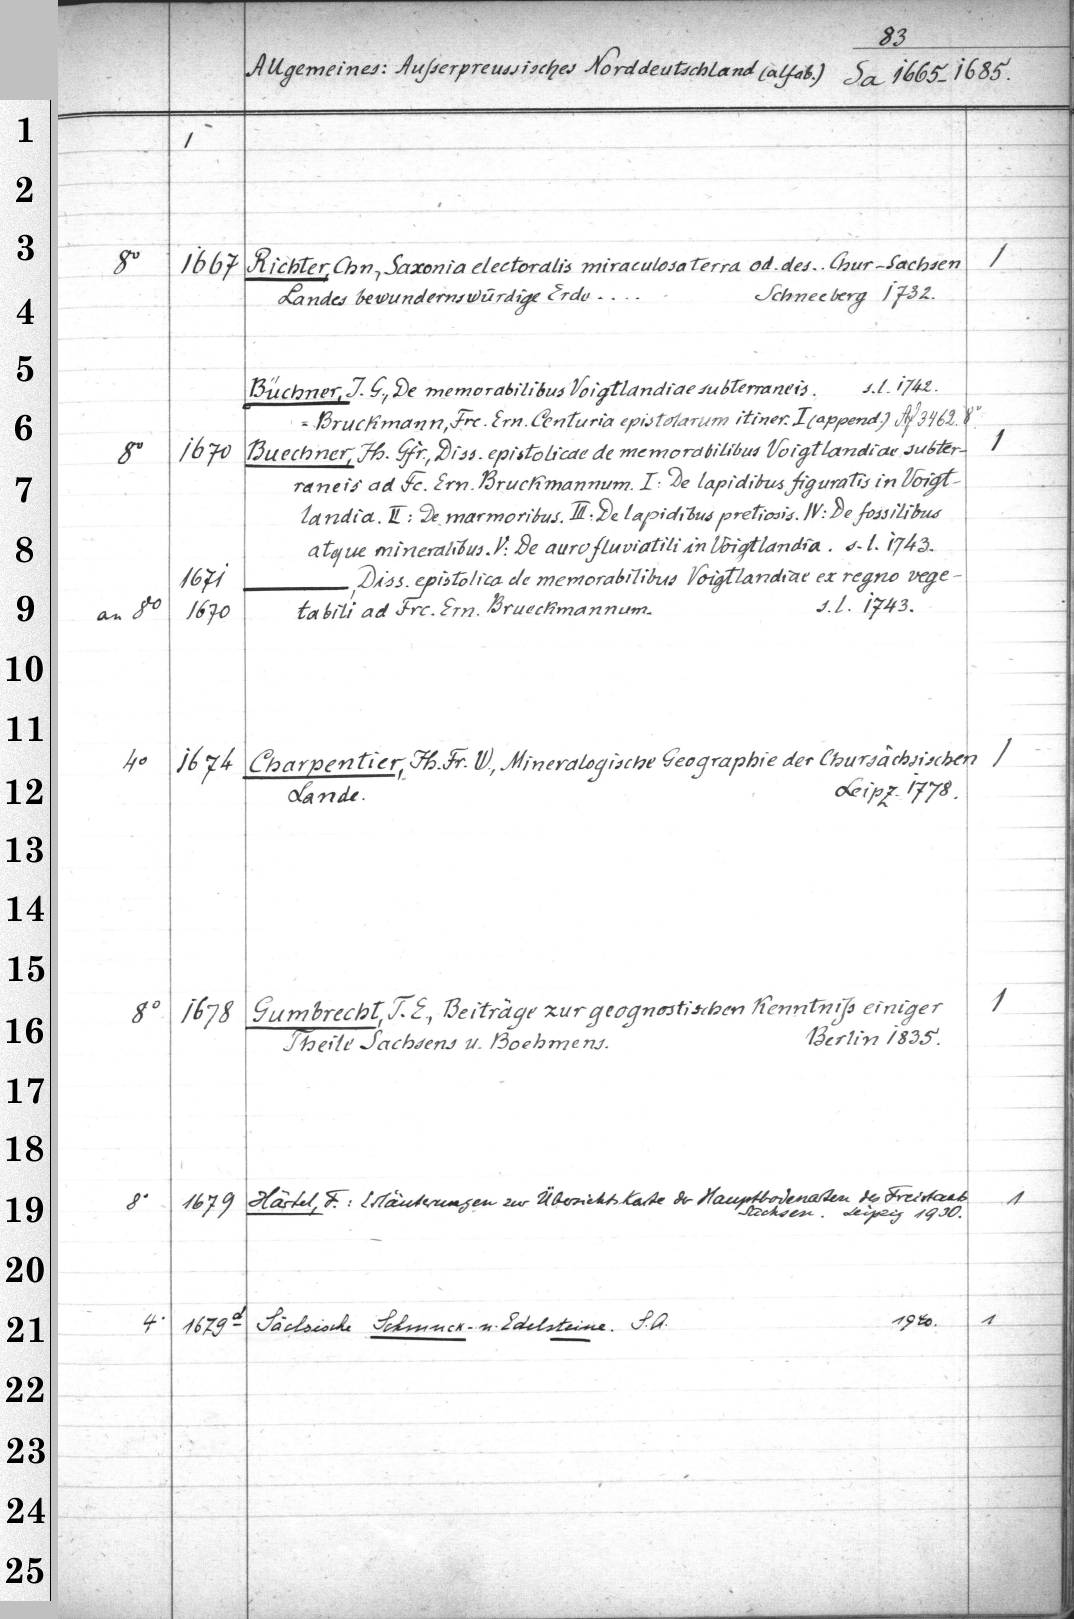 83
Allgemeines: Außerpreussisches Norddeutschland (alfab.) Sa 1665-1685.
1
1
2
3
8° 1667 Richter, Chn., Saxonia electoralis miraculosa terra od. des.. Chur-Sachsen 1
4
Landes bewundernswürdige Erde .... Schneeberg 1732.
5
Büchner, J. G., De memorabilibus Voigtlandiae subterraneis. s.l. 1742.
6
= Bruckmann, Frc. Ern. Centuria epistolarum itiner. I (append.) 3462. 8°
8° 1670 Buechner, Jh. Gfr., Diss. epistolicae de memorabilibus Voigtlandiae subter- 1
7
raneis ad Fc. Ern. Bruckmannum. I: De lapidibus figuratis in Voigt-
landia. II: De marmoribus. III: De lapidibus pretiosis. IV: De fossilibus
8
atque mineralibus. V: De auro fluviatili in Voigtlandia. s.l. 1743.
1671 , Diss. epistolica de memorabilibus Voigtlandiae ex regno vege-
9
an 8° 1670 tabili ad Frc. Ern. Brueckmannum. s.l. 1743.
10
11
4° 1674 Charpentier, Jh. Fr. W., Mineralogische Geographie der Chursächsischen 1
12
Lande. Leipz. 1778.
13
14
15
8° 1678 Gumbrecht, T. E., Beiträge zur geognostischen Kenntniß einiger 1
16
Theile Sachsens u. Boehmens. Berlin 1835.
17
18
8° 1679 Härtel, F.: Erläuterungen zur Übersichtskarte der Hauptbodenarten des Freistaats 1
19
Sachsen. Leipzig 1930.
20
4° 1679d Sächsische Schmuck- u. Edelsteine. S.A. 1940. 1
21
22
23
24
25